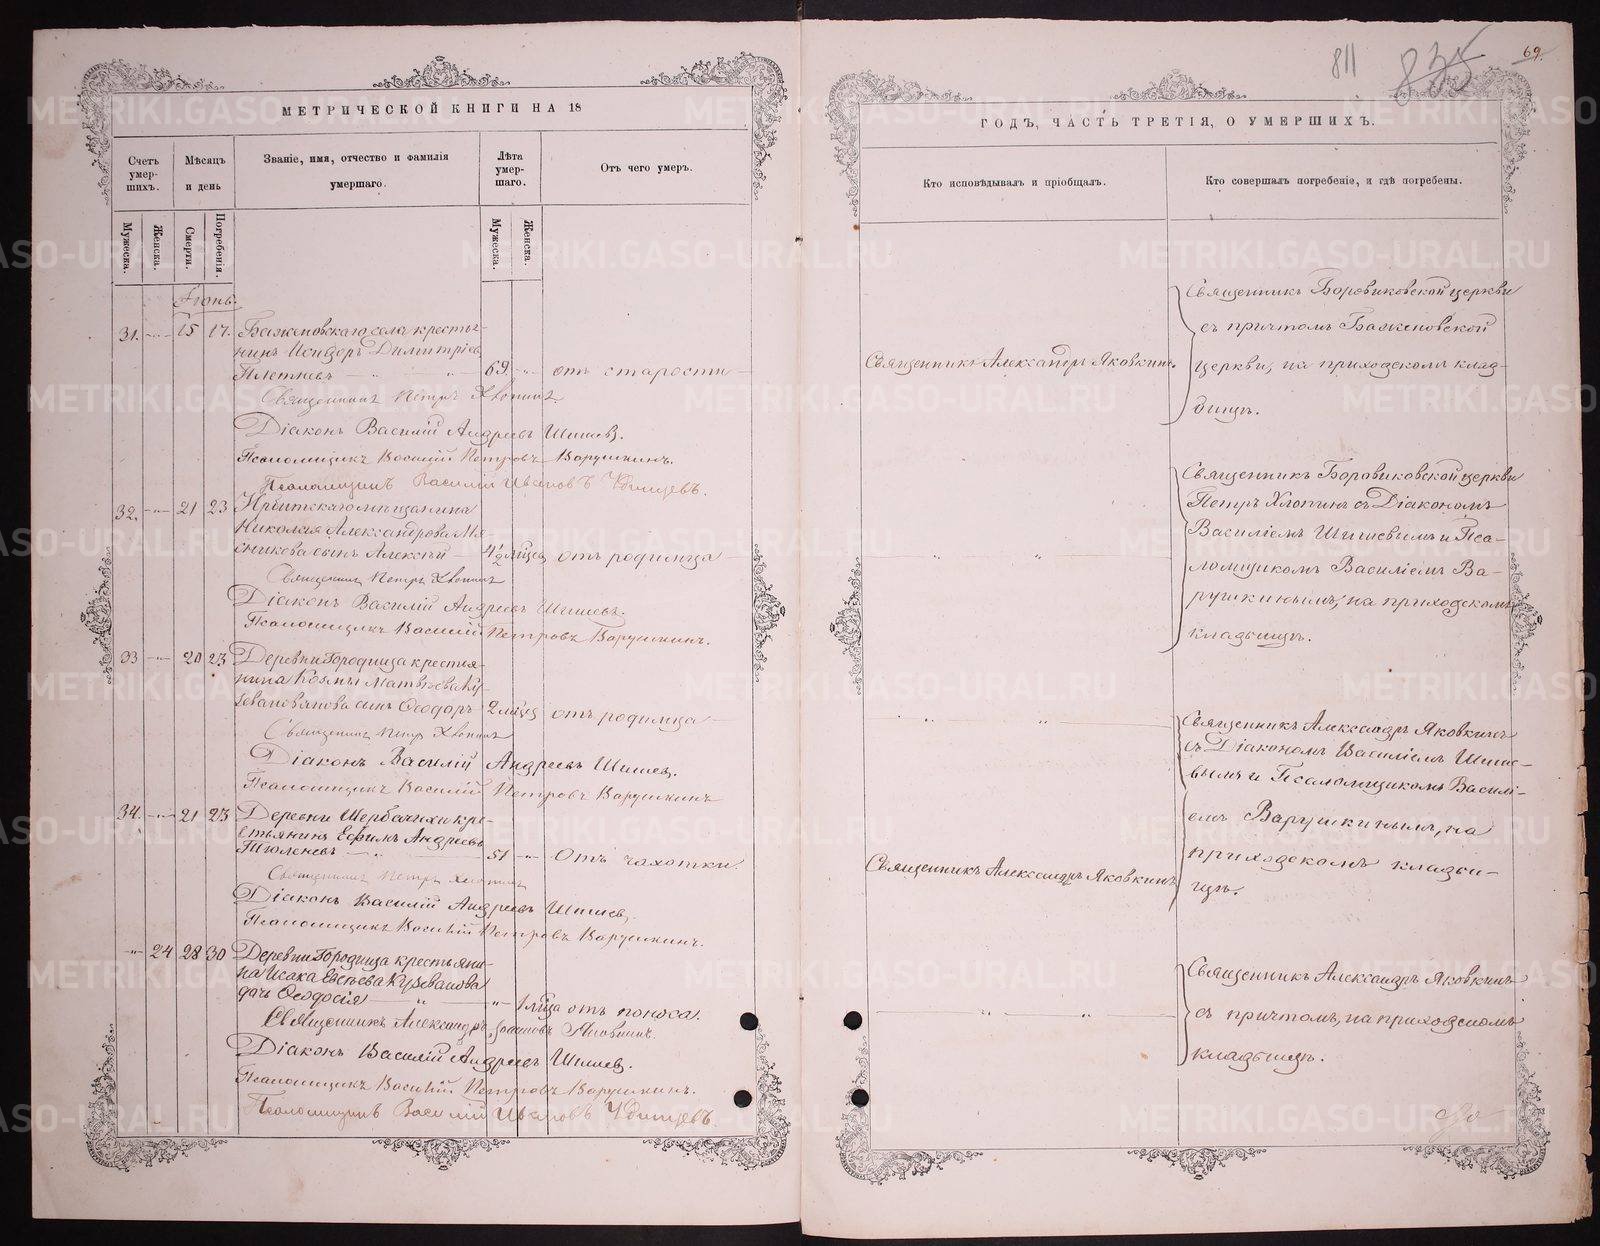 МЕТРИЧЕСКОЙ КНИГИ НА 18
Счетъ умер-шихъ.
Мѣсяцъ и день
Званіе, имя, отчество и фамилія умершаго.
Лѣта умер-шаго.
Отъ чего умеръ.
Мужеска.
Женска.
Смерти.
Погребенія.
Мужеска.
Женска.
Іюнь.
31. 15 17. Баженовскаго села крестья-
нинъ Исидоръ Димитріевъ
Плетневъ 69. отъ старости
Священникъ Петръ Хлопинъ
Діаконъ Василій Андреевъ Шишевъ.
Псаломщикъ Василій Петровъ Варушкинъ.
Псаломщикъ Василій Ивановъ
32. 21 23 Ирбитскаго мѣщанина
Николая Александрова Мя-
сникова сынъ Алексѣй 4½ мѣсяц отъ родимца
Священникъ Петръ Хлопинъ
Діаконъ Василій Андреевъ Шишевъ.
Псаломщикъ Василій Петровъ Варушкинъ.
33 20 23 Деревни Городища крестья-
нина Козмы Матвѣева
сынъ Ѳеодоръ 2 мѣсяц отъ родимца
Священникъ Петръ Хлопинъ
Діаконъ Василій Андреевъ Шишев.
Псаломщикъ Василій Петровъ Варушкинъ
34. 21 23 Деревни Щербачихи кре-
стьянинъ Ефимъ Андреевъ
Тюленевъ 51 Отъ чахотки.
Священникъ Петръ Хлопинъ
Діаконъ Василій Андреевъ Шишев.
Псаломщикъ Василій Петровъ Варушкинъ.
24 28 30 Деревни Городища крестьяни-
на Исака Евсѣева Кузеванова
дочь Ѳеодосія 1 мѣсца отъ поноса.
Священникъ Александръ Яковкинъ.
Діаконъ Василій Андреевъ Шишев.
Псаломщикъ Василій Петровъ Варушкинъ.
Псаломщикъ Василій Ивановъ
811
835
69.
ГОДЪ, ЧАСТЬ ТРЕТІЯ, О УМЕРШИХЪ.
Кто исповѣдывалъ и пріобщалъ.
Кто совершалъ погребеніе, и гдѣ погребены.
Священникъ Александръ Яковкинъ.
Священникъ Боровиковской церкви
съ причтомъ Баженовской
церкви, на приходскомъ клад-
бищѣ.
Священникъ Боровиковской церкви
Петръ Хлопинъ съ Діакономъ
Василіемъ Шишевымъ и Пса-
ломщикомъ Василіемъ Ва-
рушкинымъ, на приходскомъ
кладбищѣ.
Священникъ Александръ Яковкинъ
съ Діакономъ Василіемъ Шише-
вымъ и Псаломщикомъ Василі-
емъ Варушкинымъ, на
приходскомъ кладби-
щѣ.
Священникъ Александръ Яковкинъ
Священникъ Александръ Яковкинъ
съ причтомъ, на приходскомъ
кладбищѣ.
METRIKI.GASO-URAL.RU